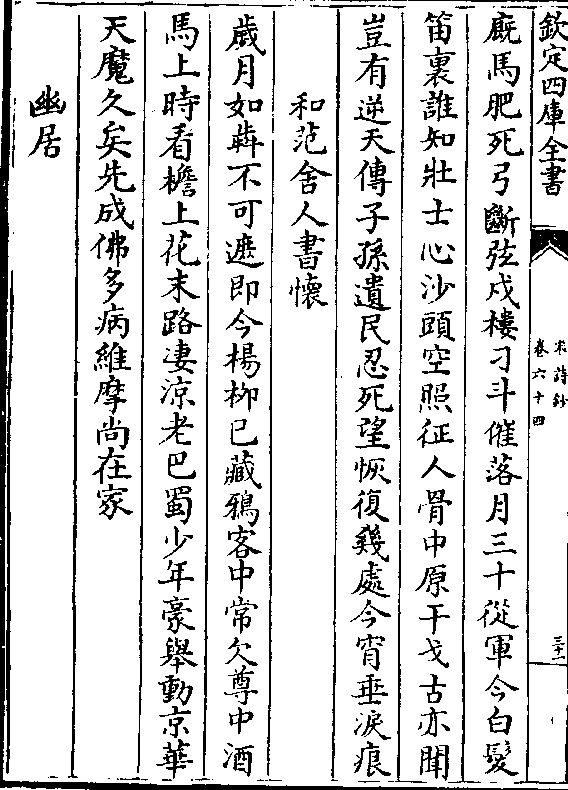 欽定四庫全書
宋詩鈔
卷六十四
三十一
廐馬肥死弓斷弦戍樓刁斗催落月三十從軍今白髮
笛裏誰知壯士心沙頭空照征人骨中原干戈古亦聞
豈有逆天傳子孫遺民忍死望恢復幾處今宵垂淚痕
和范舍人書懷
歲月如犇不可遮即今楊柳已藏鴉客中常欠尊中酒
馬上時看檐上花末路凄涼老巴蜀少年豪舉動京華
天魔久矣先成佛多病維摩尚在家
幽居